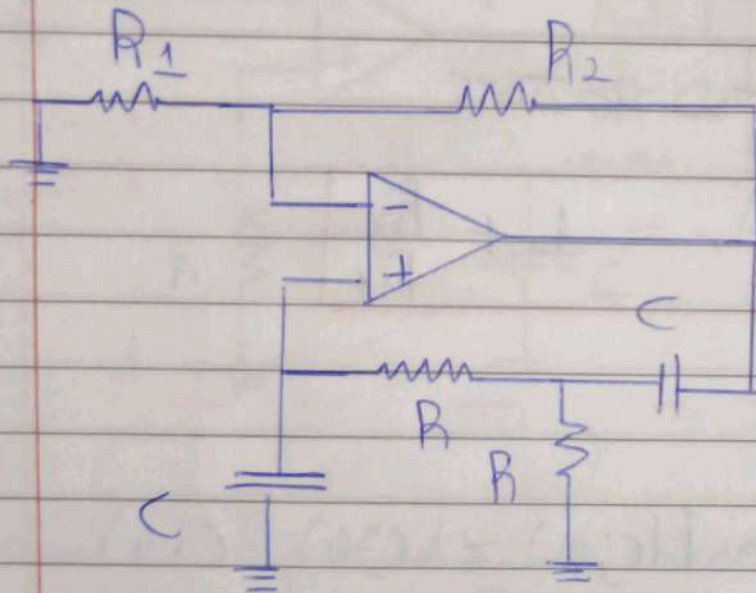 R1 R2
-
+
C
R
R
C